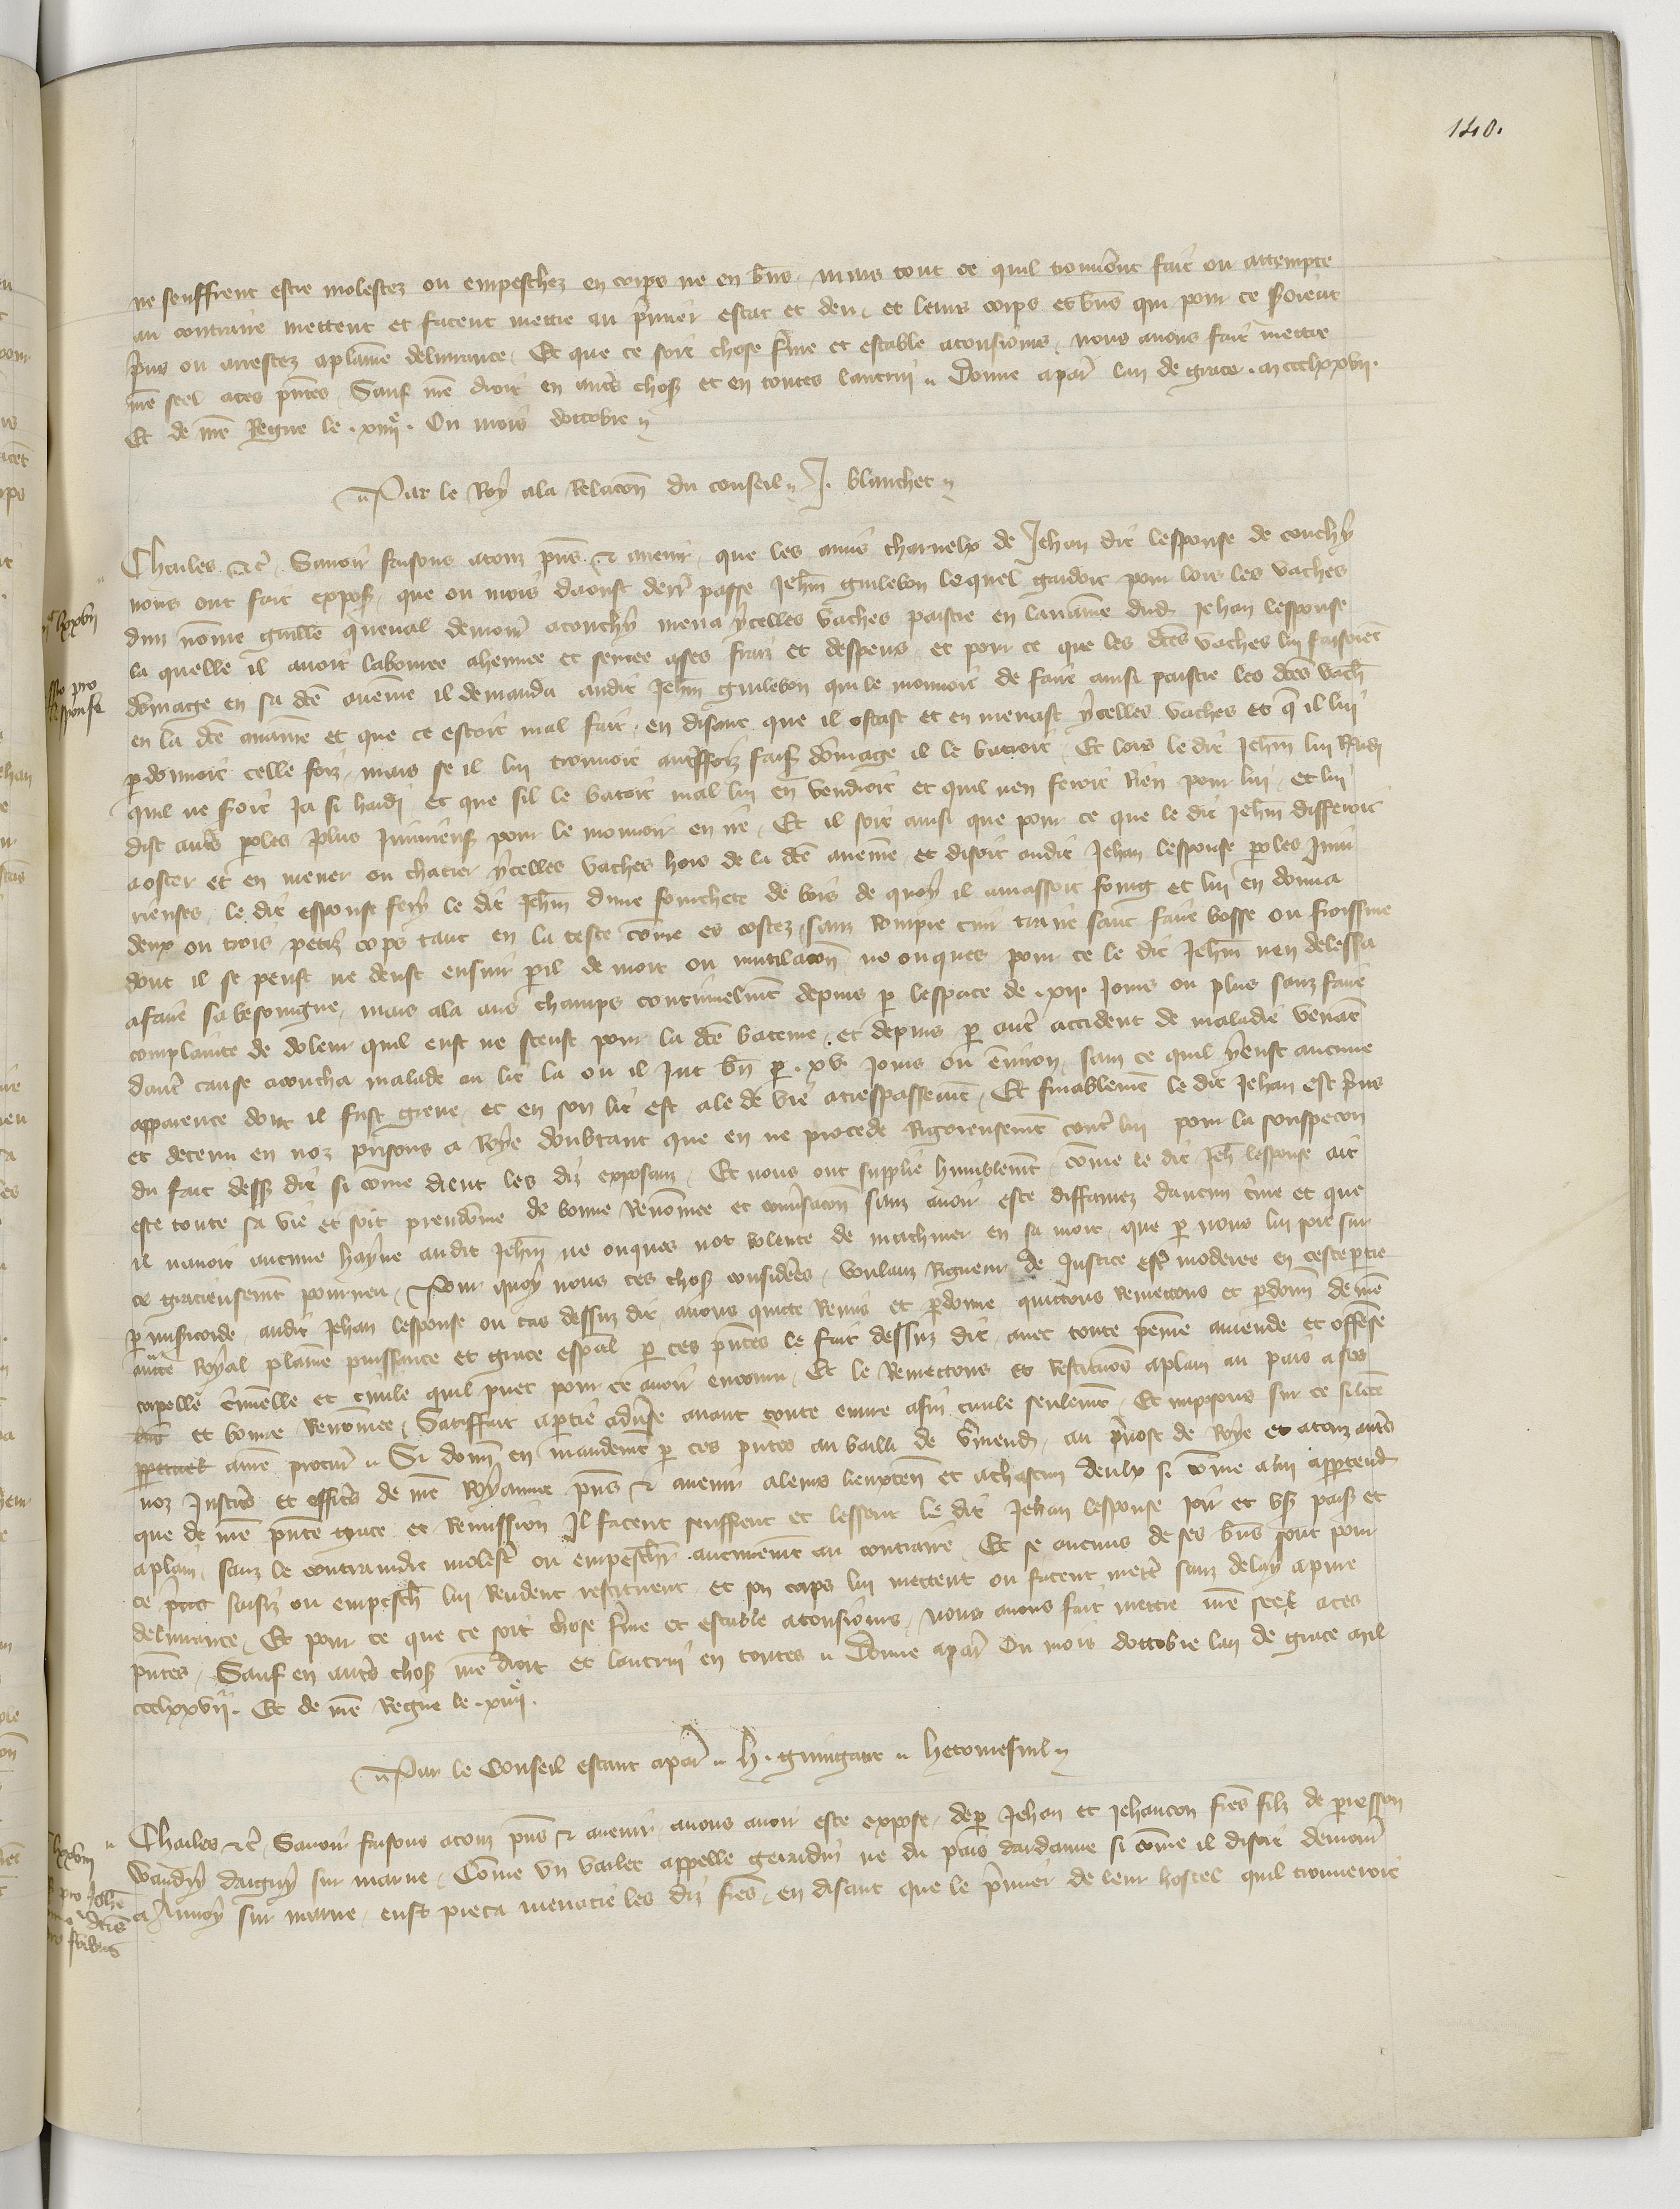 140.
ne seuffrent estre molestez ou empeschez en corps ne en bñs, mais tout ce quil trouuerõt fait ou attempte
au contraire mettent et facent mettre au p̃mier estat et deu, et leurs corps et bñs qui pour ce seroient
p̃ns ou arrestez aplaĩne deliurance, Et que ce soit chose ferme et estable atousiours, nous auons fait mettre
nr̃e seel aces pñtes, Sauf nr̃e droit en autr̃s chos̃ et en toutes lautrui, Donne a par̃ lan de grace. m ccclxxvii.
Et de nr̃e Regne le. xiiii.e Ou mois doctobre
Par le Roy ala Relacõn du conseil. J. blanchet
Charles etc̃, Sauoir faisons atous pñs et auenir, que les amis charnelx de Jehan dit lespouse de couchy
nous ont fait expos̃, que ou mois daoust derr̃ passe Jeh̃n guilebon lequel gardoit pour lors les vaches
dun nõme guill̃e queual demour̃ acouchy mena ycelles vaches paistre en lauaine dud Jehan lespouse
la quelle il auoit labouree ahennee et semee a ses fraiz et despens, et pour ce que les dc̃es vaches lui faisoiẽt
dõmage en sa dc̃e aueine il demanda audit Jeh̃n guilebon qui le mouuoit de faire ainsi paistre les dc̃es vach̃
en la dc̃e auaine et que ce estoit mal fait, en disant que il ostast et en menast ycelles vaches et q̃ il lui
p̱donnoit celle foiz, mais se il lui trouuoit autreffoiz fais̃ dõmage il le batroit, Et lors le dit Jeh̃n lui Rñdi
quil ne seroit Ja si hardi et que sil le batoit mal lui en vendroit et quil nen feroit Rien pour lui, et lui
dist autr̃s p̱oles plus Jniurieus̃ pour le mouuoir en ire, Et il soit ainsi que pour ce que le dit Jeh̃n differoit
a oster et en mener ou chacier ycelles vaches hors de la dc̃e aueine, et disoit audit Jehan lespouse p̱oles Jniu
rieuses, le dit espouse fery le dit Jeh̃n dune fourchete de bois de quoy il amassoit foing et lui en donna
deux ou trois petiz cops tant en la teste cõme es costez, sanz Rompre cuir trane sanc faire bosse ou froissure
dont il se peust ne deust ensuir peril de mort ou mutilacõn, ne onques pour ce le dit Jeh̃n nen delessa
afaire sa besoingne, mais ala aus champs continuelmt̃ depuis p̱ lespace de. xii. Jours ou plus sanz faire
complainte de doleur quil eust ne sceust pour la dc̃e bateure, et depuis p̱ autr̃ accident de maladie venãt
dautr̃ cause acoucha malade au lit la ou il Jut bñ p̱. xv. Jours ou ẽuiron, sanz ce quil y eust aucune
apparence dont il fust greue, et en son lit est ale de vie atrespassemt̃, Et finablemẽt le dit Jehan est p̃ns
et detenu en noz prisons a Roye doubtant que en ne procede Rigoreusemt̃ contr̃ lui pour la souspecon
du fait dess̃ dit si cõme dient les diz exposanz, Et nous ont supplie humblemt̃, cõme le dit Jeh̃ lespouse ait
este toute sa vie et soit preudõme de bonne Renõmee et conuersacõn sanz auoir este diffamez daucun crime et que
il nauoit aucune hayne audit Jeh̃n ne onques not volente de machiner en sa mort, que p̱ nous lui soit sur
ce gracieusemt̃ pourueu, Pour quoy nous ces chos̃ considerees, voulanz Rigueur de Justice estr̃ moderee en ceste p̱tie
p̱ mis̃icorde, audit Jehan lespouse ou cas dessuz dit, auons quicte Remis et p̱donne quictons Remettons et p̱donñ de nr̃e
auct̃e Royal plaine puissance et grace esp̃al p̱ ces pñtes le fait dessuz dit, auec toute peine amende et offense
corpelle crim̃elle et ciuile quil puet pour ce auoir encouru, Et le Remettons et Restituõs aplain au pais a ses
et bonne Renõmee, Satiffait̃ ap̱tie aduerse auant toute euure afin ciuile seulemt̃, Et imposons sur ce silẽce
ppetuel anr̃e procur̃, Si donñ en mandemẽt p̱ ces pñtes au bailli de Verm̃end, au p̃uost de Roye et atouz autr̃s
noz Justicr̃s et officr̃s de nr̃e Royaume pñs et auenir aleurs lieuxteñ et achascun deulx si cõme alui app̱tend
que de nr̃e pñte grace et Remission Il facent seuffrent et lessent le dit Jehan lespouse joir et us̃ paisc̃ et
aplain, sanz le contraindre molestr̃ ou empesch̃r aucunemt̃ au contraire, Et se aucuns de ses bñs sont pour
ce p̃ns saisiz ou empesch̃ lui Rendent restituent et son corps lui mettent ou facent mettr̃ sanz delay apure
deliurance, Et pour ce que ce soit chose ferme et estable atousiours, nous auons fait mettre nr̃e seel aces
pñtes, Sauf en autr̃s chos̃ nr̃e droit et lautrui en toutes, Donne apar̃ Ou mois doctobre lan de grace mil
ccclxxvii. Et de nr̃e Regne le. xiiii.e
Par le Conseil estant apar̃. H. guingant. hetomesnil
Charles etc̃, Sauoir faisons atouz pñs et auenir, anous auoir este expose, de p̱ Jehan et Jehancon freres filz de p̱resson
Wandry darguy sur marne, Cõme vn varlet appelle gerardin ne du pais dardanne si cõme il disoit demour̃
a Annoy sur marne, eust pieca menacie les diz freres, en disant que le p̃mier de leur hostel quil trouueroit
lxxvii
pro
lespouse
lxxviii
pro Joh̃e
fr̃ibus